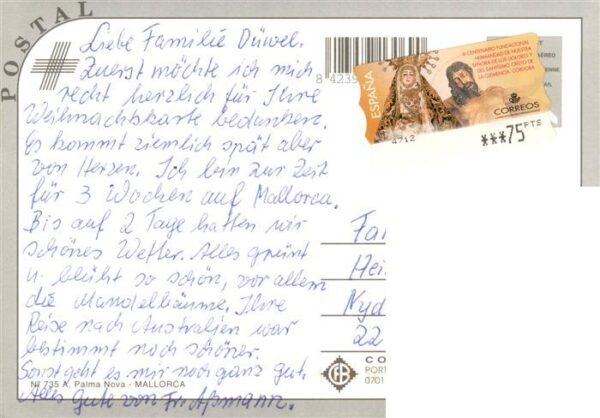 POSTAL
Liebe Familie Düwel.
Zuerst möchte ich mich
recht herzlich für Ihre
Weihnachtskarte bedanken.
Es kommt ziemlich spät aber
von Herzen. Ich bin zur Zeit
für 3 Wochen auf Mallorca.
Bis auf 2 Tage hatten wir
schönes Wetter. Alles grünt
u. blüht so schön, vor allem
die Mandelbäume. Ihre
Reise nach Australien war
bestimmt noch schöner.
Sonst geht es mir noch ganz gut.
Alles Gute von Fr. Aßmann.
Nº 735 A, Palma Nova - MALLORCA
8 4239
ESPAÑA
III CENTENARIO FUNDACIONAL
HERMANDAD DE NUESTRA
SEÑORA DE LOS DOLORES Y
DEL SANTISIMO CRISTO DE
LA CLEMENCIA. CORDOBA
CORREOS
4712
***75 PTS
AÉREO
Fa
Hei
Nyd
22
CO
POR
0701